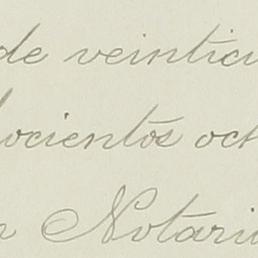 de veinticu
docientos oct
n Notari